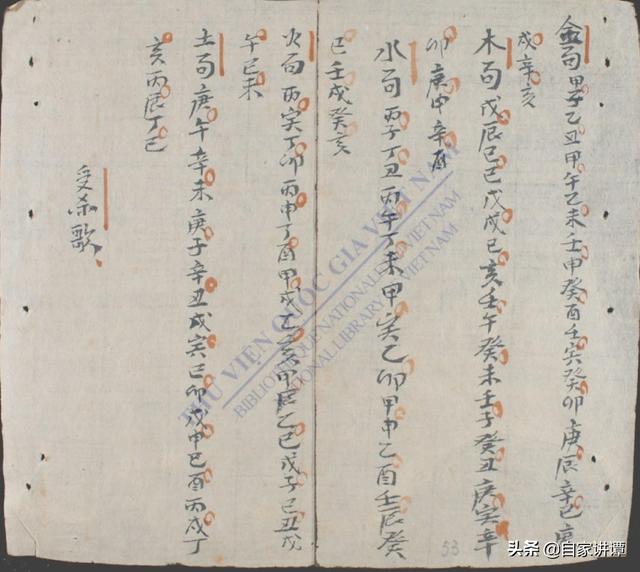 金局甲子乙丑甲午乙未壬申癸酉壬寅癸卯庚辰辛巳庚
戌辛亥
木局戊辰己巳戊戌己亥壬午癸未壬子癸丑庚寅辛
卯庚申辛酉
水局丙子丁丑丙午丁未甲寅乙卯甲申乙酉壬辰癸
巳壬戌癸亥
火局丙寅丁卯丙申丁酉甲戌乙亥甲辰乙巳戊子己丑戊
午己未
土局庚午辛未庚子辛丑戊寅己卯戊申己酉丙戌丁
亥丙辰丁巳
受杀歌
THƯ VIỆN QUỐC GIA VIỆT NAM
BIBLIOTHEQUE NATIONALE DU VIETNAM
NATIONAL LIBRARY OF VIETNAM
53
头条 @自家讲谭